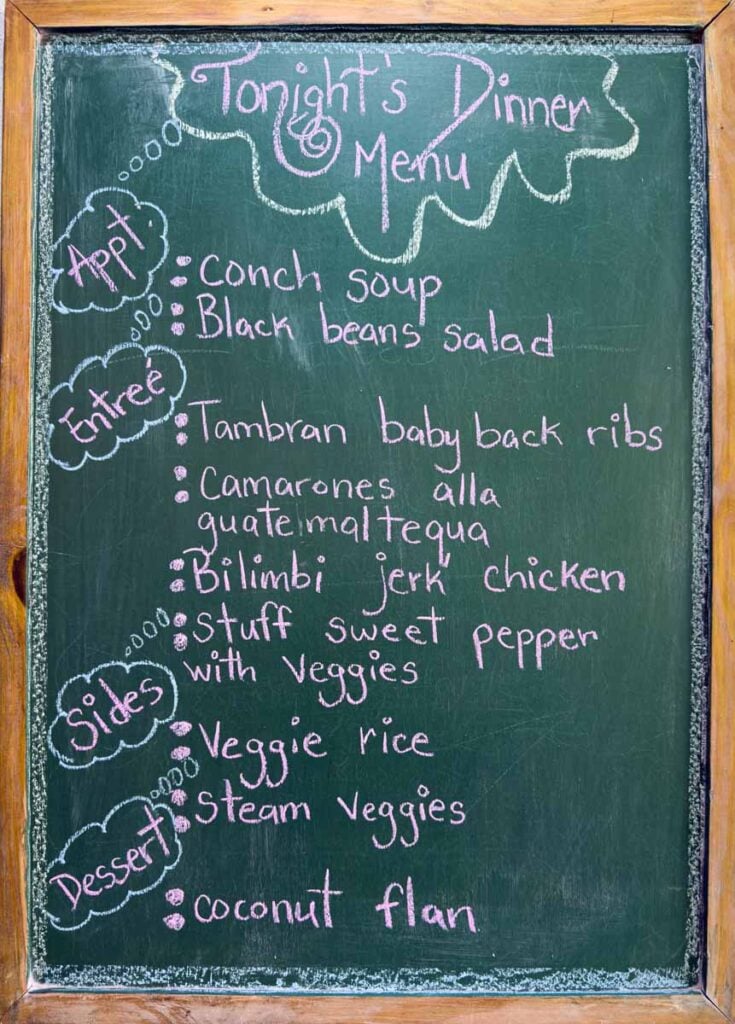 Tonight's Dinner
Menu
Appt
: Conch soup
: Black beans salad
Entreé
: Tambran baby back ribs
: Camarones alla
guatemaltequa
: Bilimbi jerk chicken
: Stuff sweet pepper
with veggies
Sides
: Veggie rice
: Steam veggies
Dessert
: coconut flan